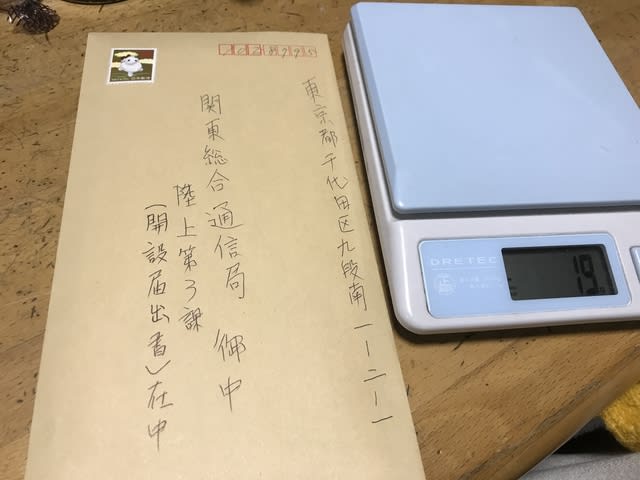 102 8795
東京都千代田区九段南一ー二ー一
関東総合通信局 御中
陸上第3課
(開設届出書)在中
DRETEC
19